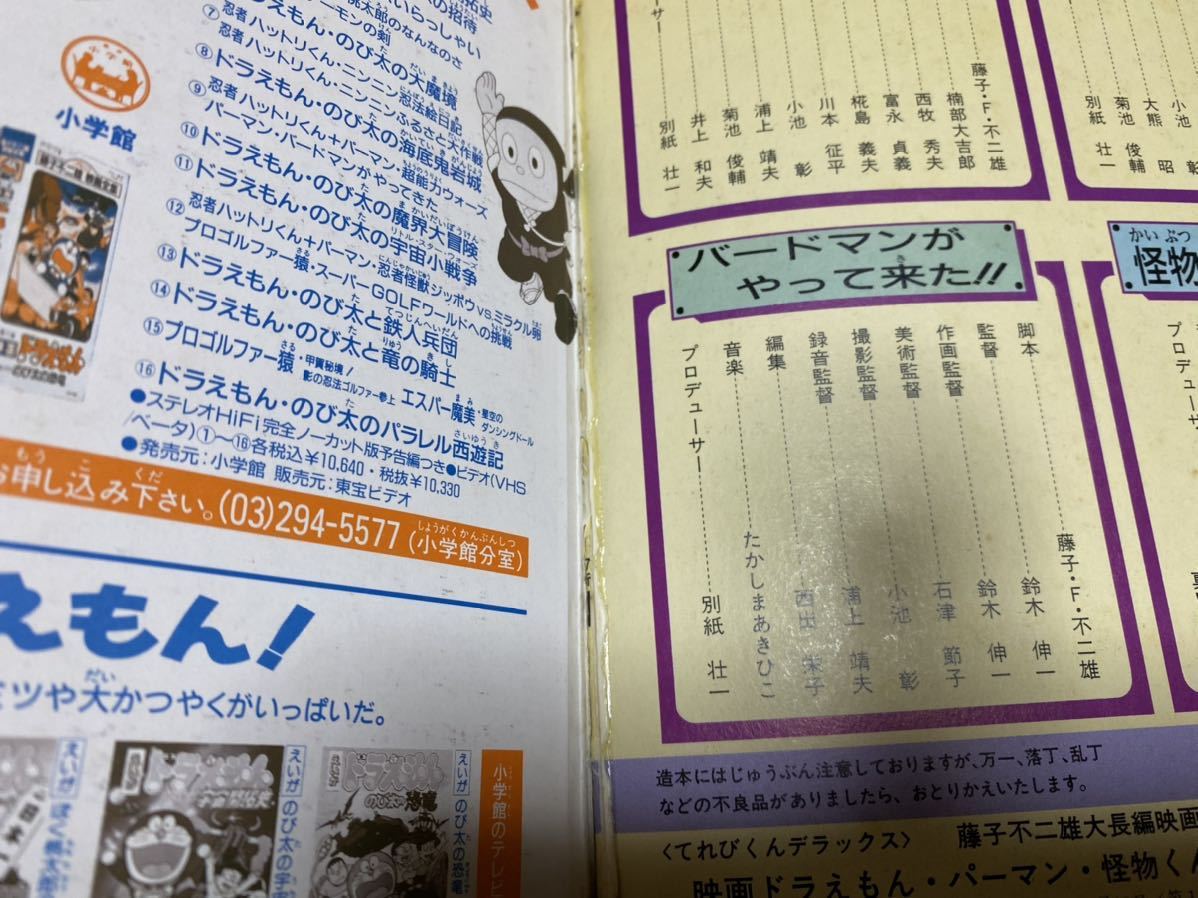 小学館
拓史
の招待
いらっしゃい
桃太郎のなんなのさ
⑦忍者ハットリくん・ニンニン忍法絵日記
⑧ドラえもん・のび太の大魔境
忍者ハットリくん・ニンニンふるさと大作戦
⑨ドラえもん・のび太の海底鬼岩城
忍者ハットリくん+パーマン・超能力ウォーズ
パーマン・バードマンがやってきた
⑩ドラえもん・のび太の魔界大冒険
⑪ドラえもん・のび太の宇宙小戦争
⑫忍者ハットリくん+パーマン・忍者怪獣ジッポウVS.ミラクル卵
プロゴルファー猿・スーパーGOLFワールドへの挑戦
⑬ドラえもん・のび太と鉄人兵団
⑭ドラえもん・のび太と竜の騎士
⑮プロゴルファー猿・甲賀秘境!影の忍法ゴルファー参上 エスパー魔美・星空のダンシングドール
⑯ドラえもん・のび太のパラレル西遊記
●ステレオHiFi完全ノーカット版予告編つき●ビデオ(VHS
/ベータ)①〜⑯各税込¥10,640・税抜¥10,330
●発売元:小学館 販売元:東宝ビデオ
お申し込み下さい。(03)294-5577(小学館分室)
えもん!
ミツや大かつやくがいっぱいだ。
えいが のび太の宇
えいが のび太の恐竜
小学館のテレビ
藤子・F・不二雄
楠部大吉郎
西牧 秀夫
富永 貞義
椛島 義夫
川本 征平
小池 彰
浦上 靖夫
菊池 俊輔
井上 和夫
別紙 壮一
小池 彰
大熊 昭
菊池 俊輔
別紙 壮一
バードマンが
やって来た!!
怪物
藤子・F・不二雄
脚本 鈴木 伸一
監督 鈴木 伸一
作画監督 石津 節子
美術監督 小池 彰
撮影監督
録音監督 浦上 靖夫
編集 西出 栄子
音楽 たかしまあきひこ
プロデューサー 別紙 壮一
プロデューサー
造本にはじゅうぶん注意しておりますが、万一、落丁、乱丁
などの不良品がありましたら、おとりかえいたします。
〈てれびくんデラックス〉 藤子不二雄大長編映画
映画ドラえもん・パーマン・怪物くん